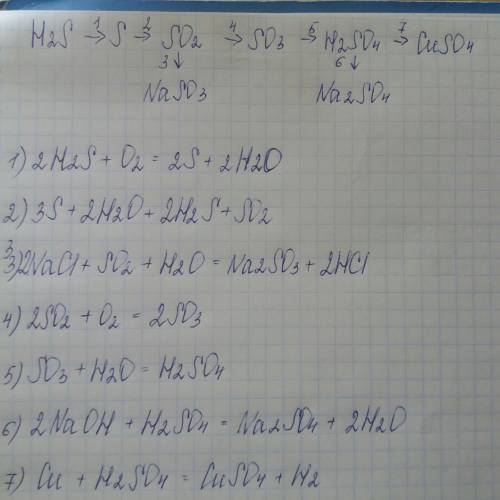 H2S 1→ S 2→ SO2 4→ SO3 5→ H2SO4 7→ CuSO4
3↓ 6↓
NaSO3 Na2SO4
1) 2H2S + O2 = 2S + 2H2O
2) 3S + 2H2O + 2H2S + SO2
3
3) 2NaCl + SO2 + H2O = Na2SO3 + 2HCl
4) 2SO2 + O2 = 2SO3
5) SO3 + H2O = H2SO4
6) 2NaOH + H2SO4 = Na2SO4 + 2H2O
7) Cu + H2SO4 = CuSO4 + H2